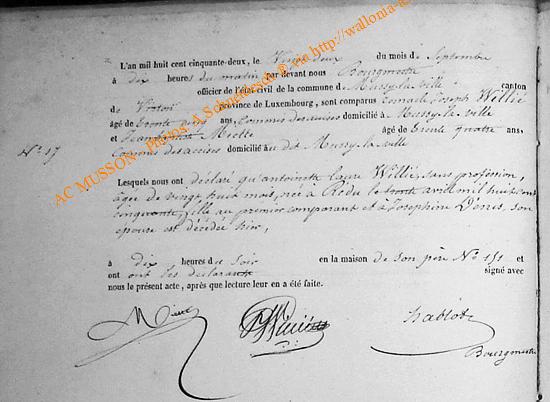 L'an mil huit cent cinquante-deux, le Vingt deux du mois de Septembre
à Dix heures du matin par devant nous Bourgmestre
officier de l'état civil de la commune de Mussy-la-ville canton
de Virton province de Luxembourg, sont comparus Joseph Willié
âgé de trente deux ans, Commis des accises domicilié à Mussy-la-ville
et Miette âgé de trente quatre ans,
Commis des accises domicilié au dit Mussy-la-ville
N° 17
Lesquels nous ont déclaré qu'antoinette Laure Willié, sans profession,
âgée de vingt huit mois, née à Redu le trente avril mil huit cent
cinquante, fille au premier comparant et à Joséphine Denis, son
épouse est décédée hier,
à dix heures du soir en la maison de son père N° 151 et
ont les déclarants signé avec
nous le présent acte, après que lecture leur en a été faite.
Bourgmestre
AC MUSSON - Photos: A.Schuerzesch © via http://wallonia-a